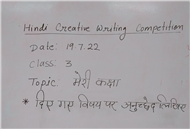 Hindi Creative Writing Competition
Date: 19.7.22
Class: 3
Topic मेरी कक्षा
* दिए गए विषय पर अनुच्छेद लिखिए